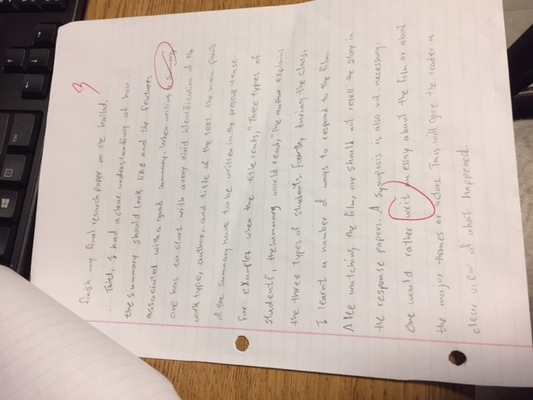 finish my final research paper on the ballad.
3
Third, I had a clear understanding of how
the summary should look like and the features
associated with a good summary. When writing a summary
one has to start with a very vivid identification of the
work type, author, and title of the text. The main points
of the summary have to be written in the present tense
For examples when the title reads, "Three types of
students", the summary would read, "The author explains
the three types of students. Fourthly during the class,
I learnt a number of ways to respond to the film.
After watching the film, one should not retell the story in
the response papers. A Synopsis is also not necessary.
One would rather writ an essay about the film or about
the major themes or actors. This will give the reader a
clear view of what happened.